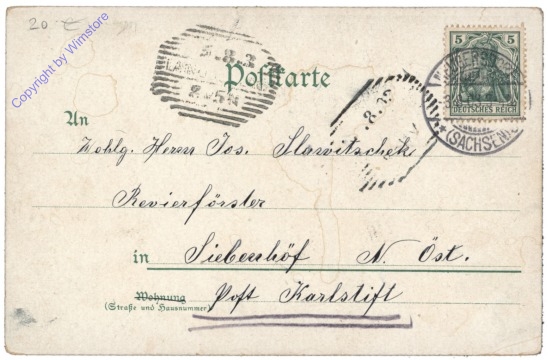 20
Copyright by Wimstore
5 5
DEUTSCHES REICH
(SACHSEN)
Postkarte
An
Wohlg. Herrn Jos. Slawitschek
Revierförster
in Siebenhöf N. Öst.
Wohnung
(Straße und Hausnummer)
Post Karlstift